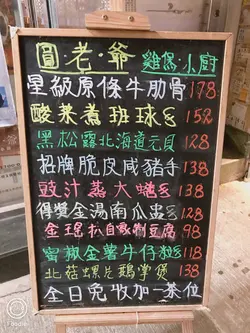 圓老爺 雞煲小廚
星級原條牛肋骨 178
酸菜煮班球 152
黑松露北海道元貝 128
招牌脆皮咸豬手 138
豉汁蒸大鱔 138
得獎金湯南瓜盅 128
金瑤扒自家制豆腐 98
蜜椒金薯牛仔粒 118
北菇螺片鵝掌煲 138
全日免收加一茶位